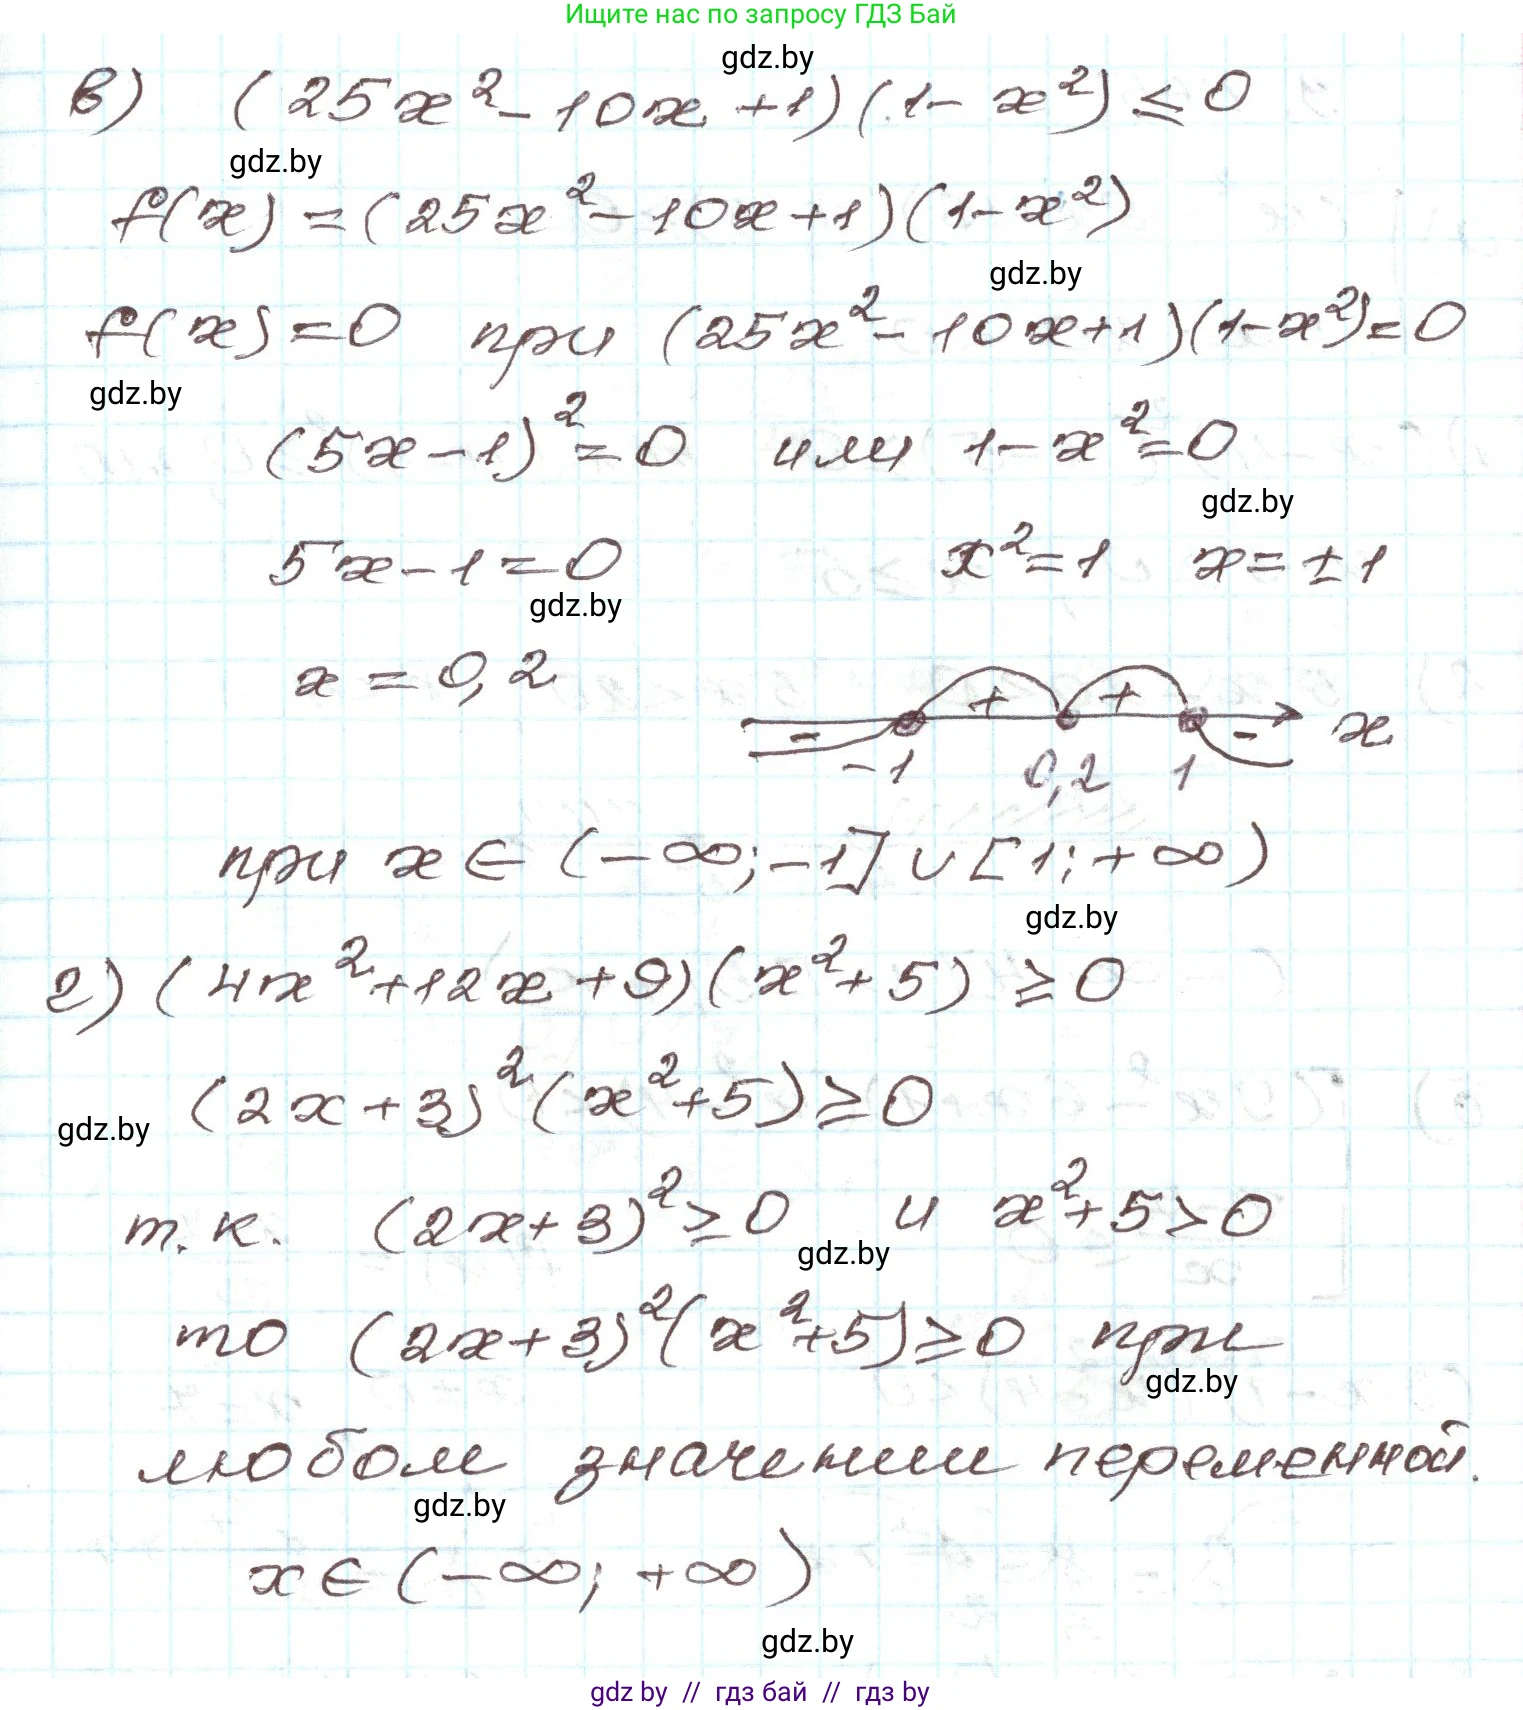 Ищите нас по запросу ГДЗ Бай
gdz.by
в) (25x² - 10x + 1)(1 - x²) ≤ 0
gdz.by
f(x) = (25x² - 10x + 1)(1 - x²)
gdz.by
f(x) = 0 при (25x² - 10x + 1)(1 - x²) = 0
gdz.by
(5x - 1)² = 0 или 1 - x² = 0
gdz.by
5x - 1 = 0 x² = 1 x = ± 1
gdz.by
x = 0,2
- + + - x
-1 0,2 1
при x ∈ (-∞; -1] ∪ [1; +∞)
gdz.by
г) (4x² + 12x + 9)(x² + 5) ≥ 0
(2x + 3)² (x² + 5) ≥ 0
gdz.by
т.к. (2x + 3)² ≥ 0 и x² + 5 > 0
gdz.by
то (2x + 3)² (x² + 5) ≥ 0 при
gdz.by
любом значении переменной.
gdz.by
x ∈ (-∞; +∞)
gdz.by
gdz by // гдз бай // гдз by